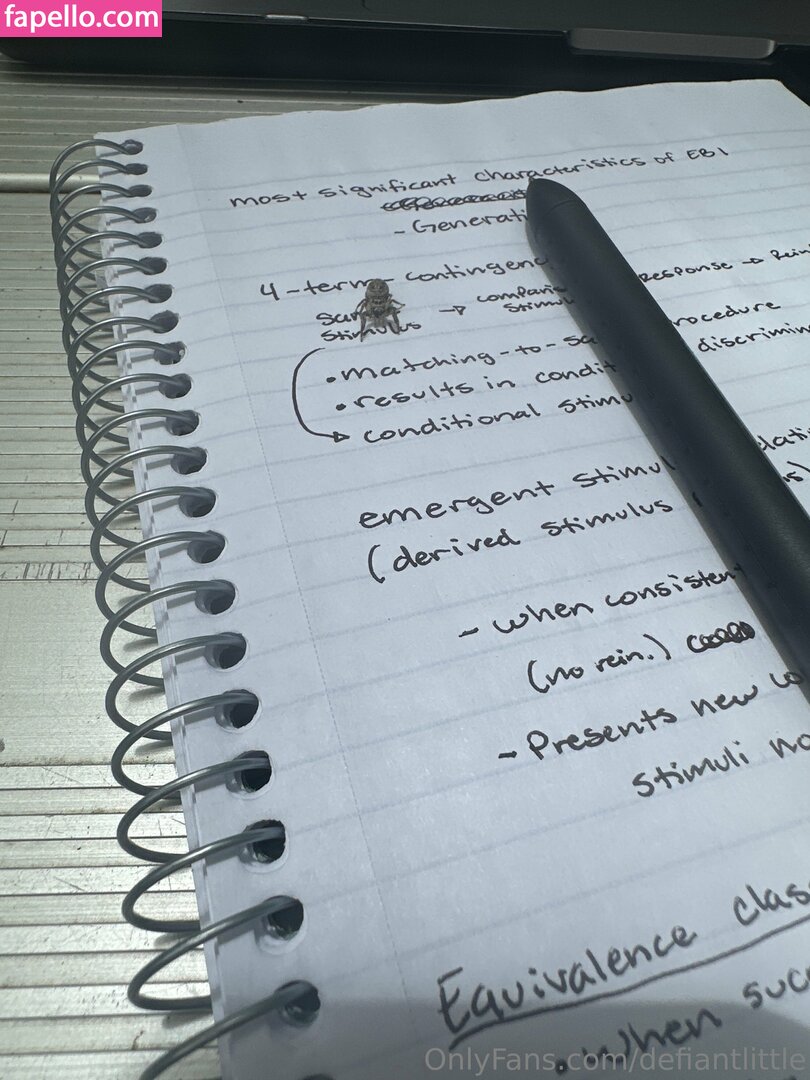 fapello.com
most significant characteristics of EBI
- Generati
4-term contingenc
Response → Rein
Stimulus → comparis
Stimul
• matching-to-sa rocedure
• results in condit discrimin
conditional stimu
emergent stimul
(derived stimulus
- when consistent
(no rein.)
- Presents new co
stimuli no
Equivalence clas
• When succ
OnlyFans.com/defiantlittle